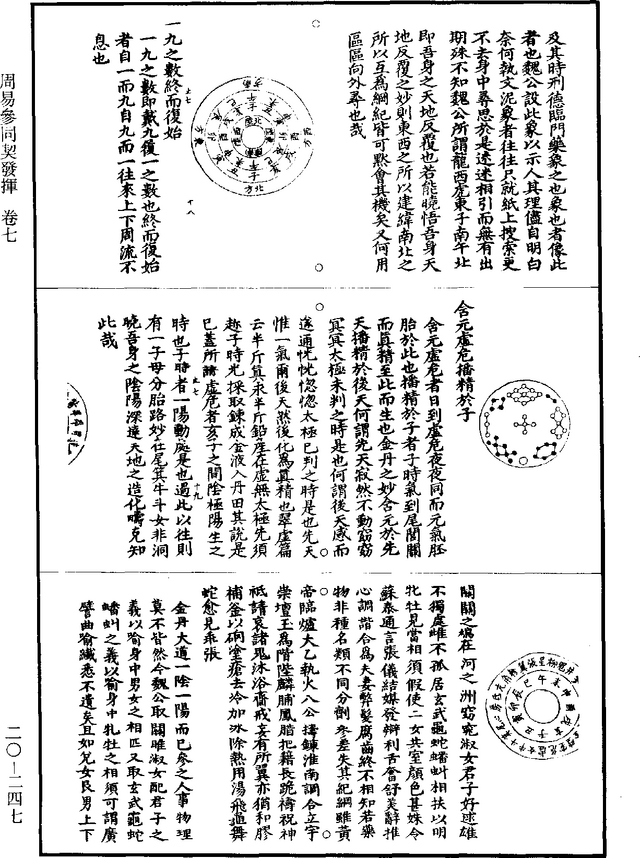 及其時刑德臨門藥象之也象也者像此
者也魏公設此象以示人其理儘自明白
奈何執文泥象者往往只就紙上搜索更
不去身中尋思於是迷迷相引而無有出
期殊不知魏公所謂龍西虎東子南午北
即吾身之天地反覆也若能曉悟吾身天
地反覆之妙則東西之所以建緯南北之
所以互為綱紀皆可默會其機矣又何用
區區向外尋也哉
一九之數終而復始
一九之數即戴九履一之數也終而復始
者自一而九自九而一往來上下周流不
息也
含元虛危播精於子
含元虛危者日到虛危夜夜同而元氣胚
胎於此也播精於子者子時氣到尾閭關
而真精至此而生也金丹之妙含元於先
天播精於後天何謂先天寂然不動窈窈
冥冥太極未判之時是也何謂後天感而
遂通恍恍惚惚太極已判之時是也先天
惟一氣爾後天然後化為真精也翠虛篇
云半斤真汞半斤鉛產在虛無太極先須
趁子時光採取鍊成金液入丹田其說是
已蓋所謂虛危者亥子之間陰極陽生之
時也子時者一陽動處是也過此以往則
有一子母分胎路妙在尾箕斗牛女非洞
曉吾身之陰陽深達天地之造化疇克知
此哉
關關之鳩在河之洲窈窕淑女君子好逑雄
不獨處雌不孤居玄武龜蛇蟠虯相扶以明
牝牡竟當相須假使二女共室顏色甚姝令
蘇秦通言張儀結媒發辯利舌奮舒美辭推
心調諧合為夫妻弊髮腐齒終不相知若藥
物非種名類不同分劑參差失其紀綱雖黃
帝臨爐太乙執火八公擣鍊淮南調合立宇
崇壇玉為階陛麟脯鳳腊把籍長跪禱祝神
祇請哀諸鬼沐浴齋戒妄有所冀亦猶和膠
補釜以硇塗瘡去冷加冰除熱用湯飛龜舞
蛇愈見乖張
金丹大道一陰一陽而已參之人事物理
莫不皆然今魏公取關雎淑女配君子之
義以喻身中男女之相匹又取玄武龜蛇
蟠虯之義以喻身中牝牡之相須可謂廣
譬曲喻纖悉不遺矣且如兌女艮男上下
周易參同契發揮 卷七
二〇—二四七